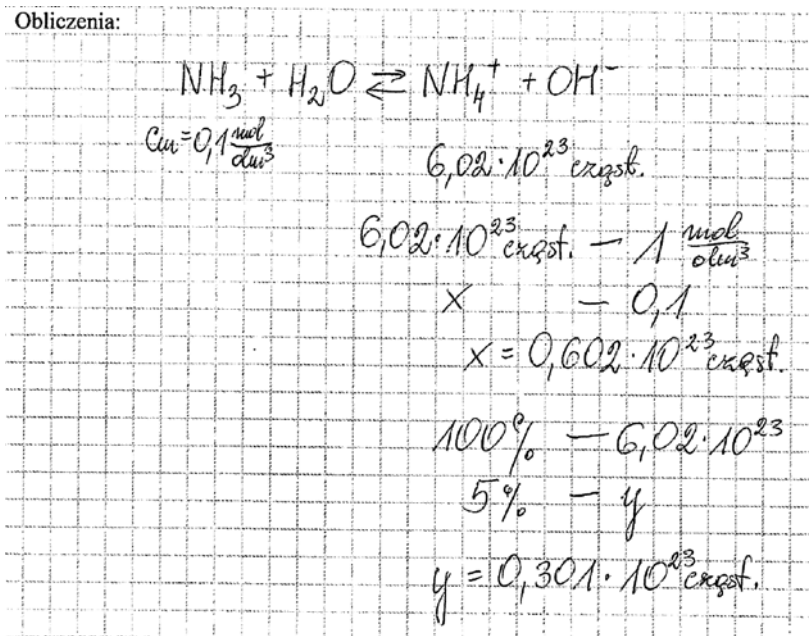 Obliczenia:
NH₃ + H₂O ⇄ NH₄⁺ + OH⁻
Cm = 0,1 mol/dm³
6,02·10²³ cząst.
6,02·10²³ cząst. — 1 mol/dm³
x — 0,1
x = 0,602·10²³ cząst.
100% — 6,02·10²³
5% — y
y = 0,301·10²³ cząst.